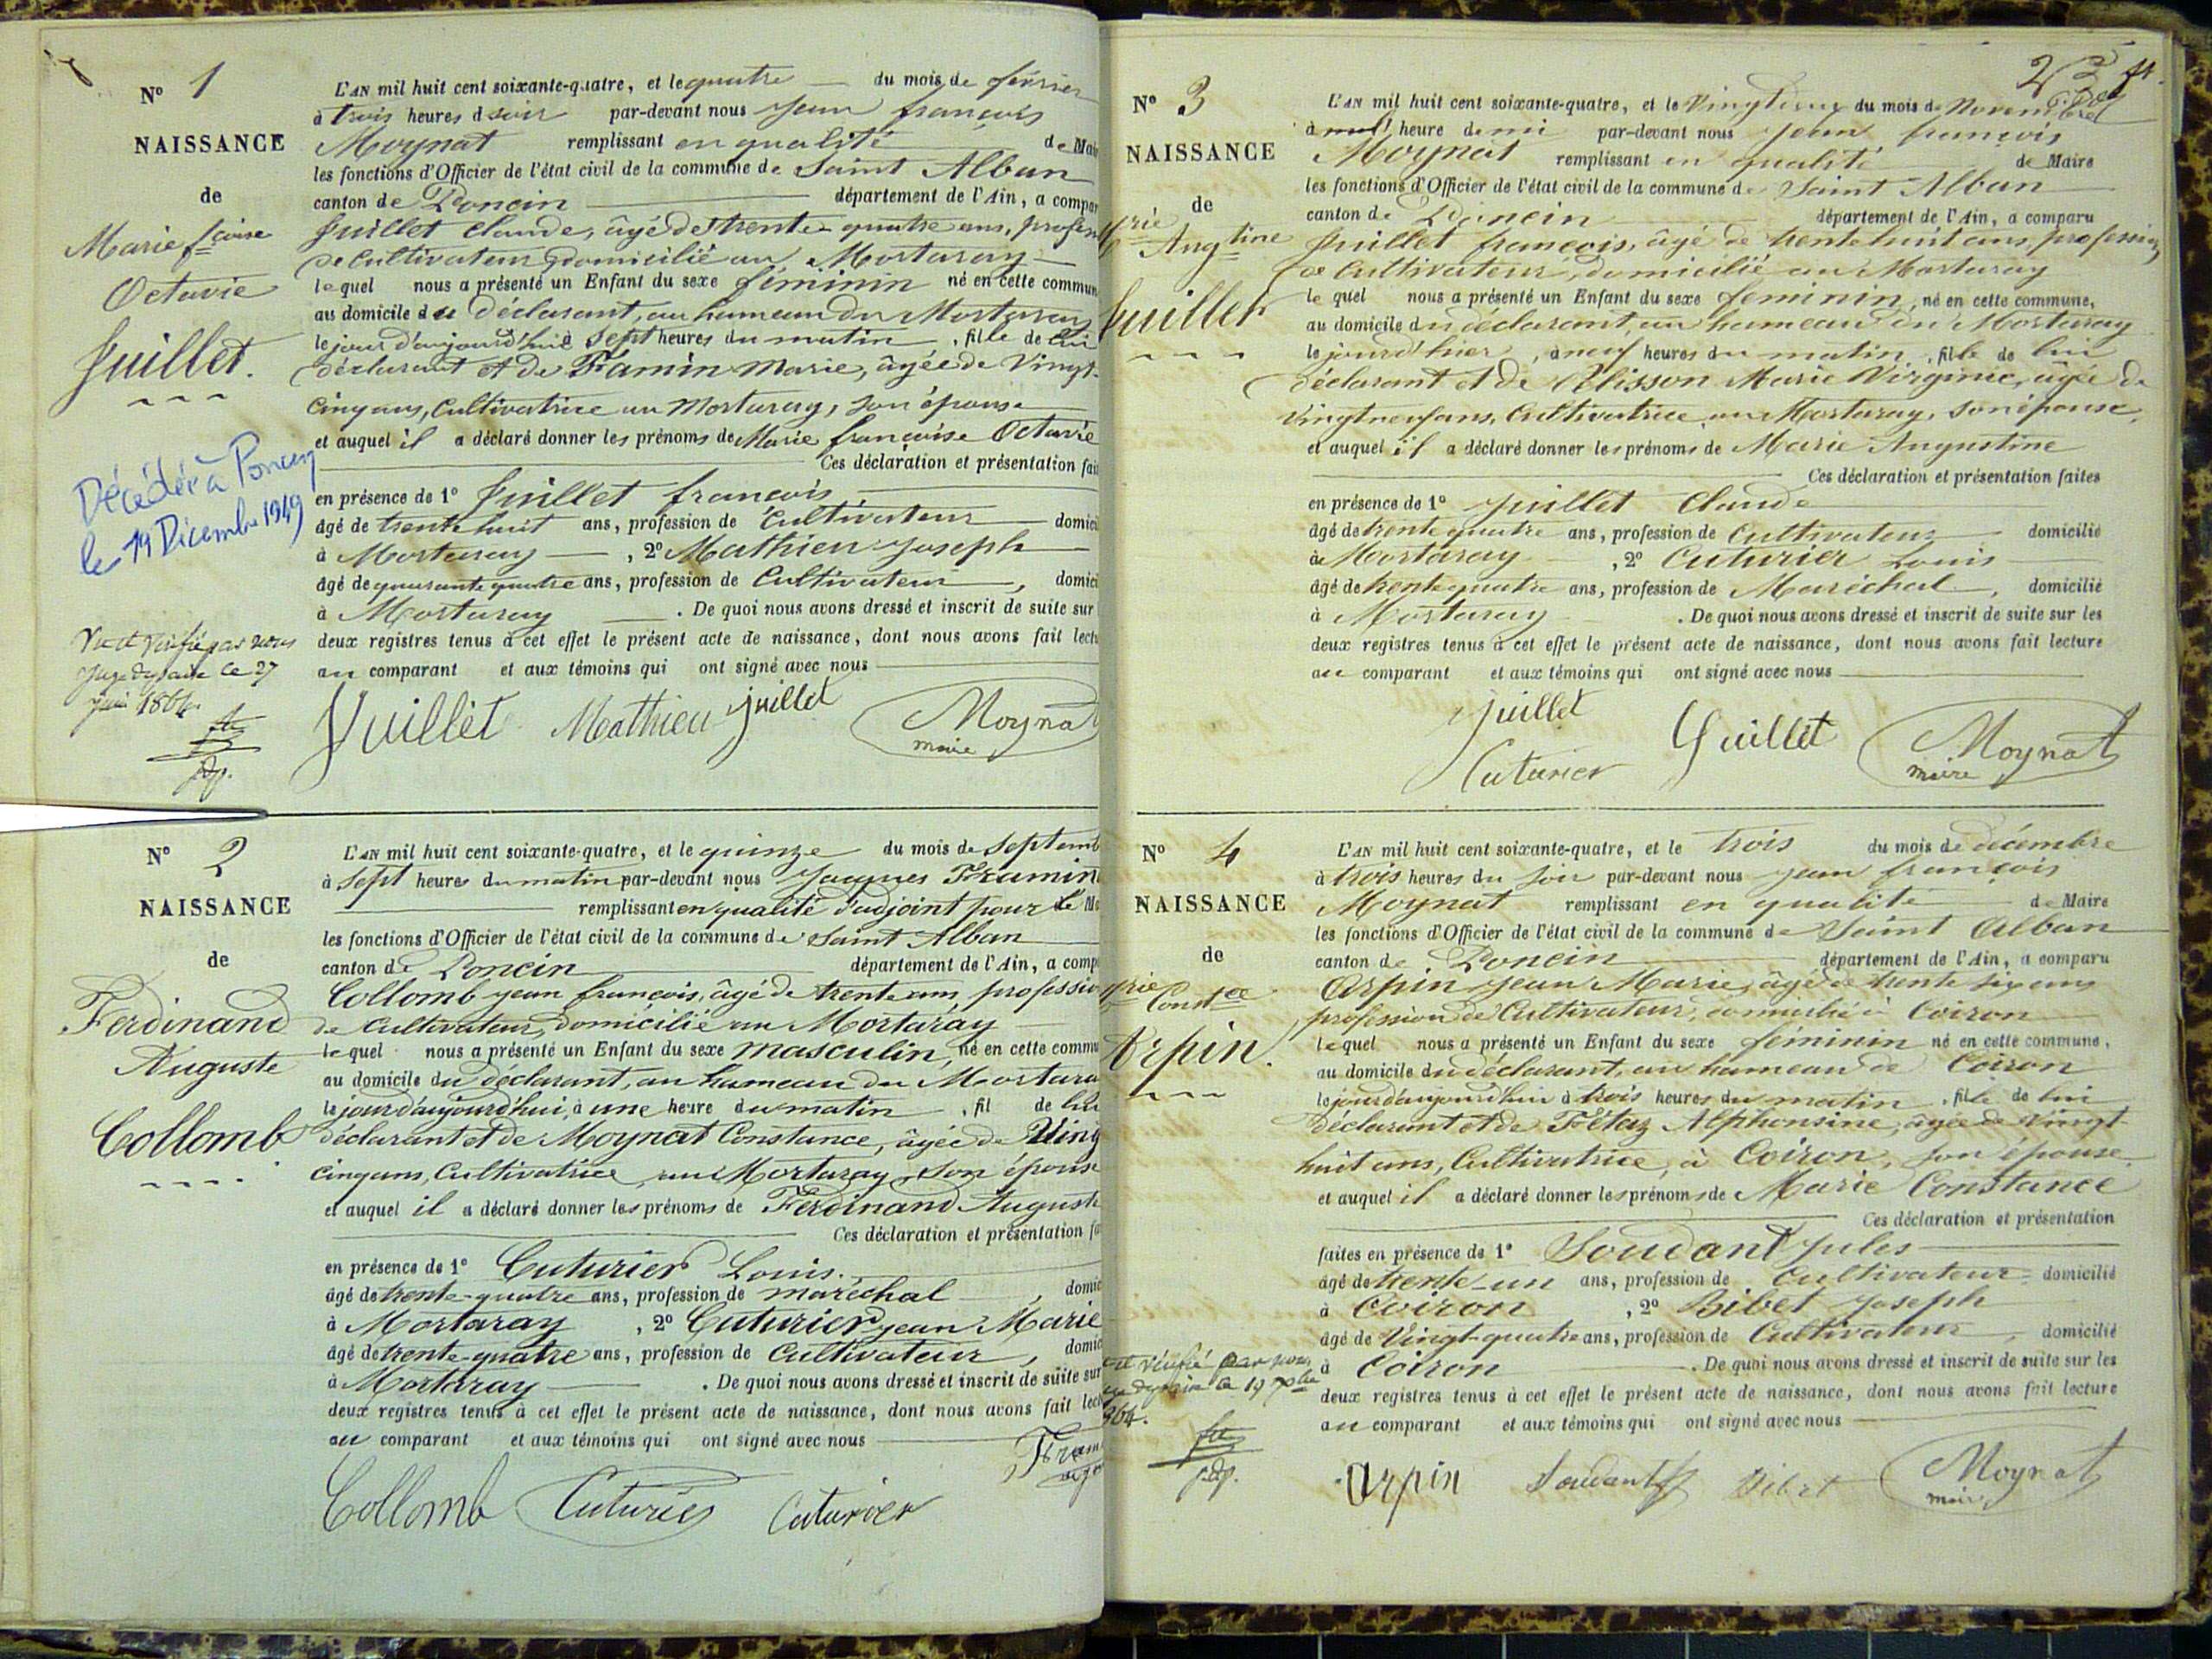 N° 1
NAISSANCE
de
Marie fçoise
Octavie
Juillet.
Décédée à Poncin
le 14 Décembre 1949
Vu et Vérifié par nous
Juge de paix le 27
juin 1864.
jdp.
L'AN mil huit cent soixante-quatre, et le quatre du mois de février
à trois heures d soir par-devant nous jean françois
Moynat remplissant en qualité de Mai
les fonctions d'Officier de l'état civil de la commune de Saint Alban
canton de Poncin département de l'Ain, a compar
Juillet Claude, âgé de trente-quatre ans, profess
de Cultivateur, domicilié au Mortaray
lequel nous a présenté un Enfant du sexe féminin né en cette commun
au domicile du déclarant, au hameau du Mortaray
le jour d'aujourd'hui à Sept heures du matin, fille de lui
déclarant et de Framin Marie, âgée de Vingt-
Cinq ans, Cultivatrice au Mortaray, son épouse
et auquel il a déclaré donner les prénoms de Marie françoise Octavie
Ces déclaration et présentation fai
en présence de 1° Juillet françois
âgé de trente huit ans, profession de Cultivateur domici
à Mortaray, 2° Mathieu Joseph
âgé de quarante quatre ans, profession de Cultivateur, domici
à Mortaray. De quoi nous avons dressé et inscrit de suite sur
deux registres tenus à cet effet le présent acte de naissance, dont nous avons fait lectu
au comparant et aux témoins qui ont signé avec nous
Juillet Mathieu juillet Moynat
maire
N° 2
NAISSANCE
de
Ferdinand
Auguste
Collomb
L'AN mil huit cent soixante-quatre, et le quinze du mois de Septemb
à Sept heures du matin par-devant nous Jacques Framin
remplissant en qualité d'adjoint pour le Ma
les fonctions d'Officier de l'état civil de la commune de Saint Alban
canton de Poncin département de l'Ain, a comp
Collomb jean françois, âgé de trente ans, professio
de Cultivateur, domicilié au Mortaray
lequel nous a présenté un Enfant du sexe masculin, né en cette commu
au domicile du déclarant, au hameau du Mortara
le jour d'aujourd'hui, à une heure du matin, fil de lui
déclarant et de Moynat Constance, âgée de Ving
cinq ans, Cultivatrice au Mortaray, son épouse
et auquel il a déclaré donner les prénoms de Ferdinand Auguste
Ces déclaration et présentation fa
en présence de 1° Cuturier Louis.
âgé de trente-quatre ans, profession de maréchal, domic
à Mortaray, 2° Cuturier jean Marie
âgé de trente-quatre ans, profession de Cultivateur, domic
à Mortaray. De quoi nous avons dressé et inscrit de suite sur
deux registres tenus à cet effet le présent acte de naissance, dont nous avons fait lect
au comparant et aux témoins qui ont signé avec nous
Fram
Collomb Cuturier Cuturier
N° 3
NAISSANCE
de
rie Augtine
Juillet
L'AN mil huit cent soixante-quatre, et le Vingt deux du mois de Novembre
à heure demi par-devant nous jean françois
Moynat remplissant en qualité de Maire
les fonctions d'Officier de l'état civil de la commune de Saint Alban
canton de Poncin département de l'Ain, a comparu
Juillet françois, âgé de trente huit ans, profession
de Cultivateur, domicilié au Mortaray
le quel nous a présenté un Enfant du sexe féminin, né en cette commune,
au domicile du déclarant, au hameau du Mortaray
le jour d'hier, à neuf heures du matin, fille de lui
déclarant et de Pélisson Marie Virginie, âgée de
Vingt neuf ans, Cultivatrice au Mortaray, son épouse
et auquel il a déclaré donner les prénoms de Marie Augustine
Ces déclaration et présentation faites
en présence de 1° Juillet Claude
âgé de trente quatre ans, profession de Cultivateur domicilié
à Mortaray, 2° Cuturier Louis
âgé de trente quatre ans, profession de Maréchal, domicilié
à Mortaray. De quoi nous avons dressé et inscrit de suite sur les
deux registres tenus à cet effet le présent acte de naissance, dont nous avons fait lecture
au comparant et aux témoins qui ont signé avec nous
juillet Juillet Moynat
Cuturier maire
N° 4
NAISSANCE
de
rie Constce
Arpin.
et vérifié par nous
de paix le 19 Xbre
864.
jdp.
L'AN mil huit cent soixante-quatre, et le trois du mois de décembre
à trois heures du soir par-devant nous jean françois
Moynat remplissant en qualité de Maire
les fonctions d'Officier de l'état civil de la commune de Saint Alban
canton de Poncin département de l'Ain, a comparu
Arpin Jean Marie, âgé de trente six ans
profession de Cultivateur, domicilié à Coiron
lequel nous a présenté un Enfant du sexe féminin né en cette commune,
au domicile du déclarant, au hameau de Coiron
le jour d'aujourd'hui à trois heures du matin, fille de lui
déclarant et de Fétaz Alphonsine, âgée de Vingt
huit ans, Cultivatrice, à Coiron, son épouse
et auquel il a déclaré donner les prénoms de Marie Constance
Ces déclaration et présentation
faites en présence de 1° Soudant Jules
âgé de trente-un ans, profession de Cultivateur domicilié
à Coiron, 2° Bibet Joseph
âgé de Vingt-quatre ans, profession de Cultivateur, domicilié
à Coiron. De quoi nous avons dressé et inscrit de suite sur les
deux registres tenus à cet effet le présent acte de naissance, dont nous avons fait lecture
au comparant et aux témoins qui ont signé avec nous
Arpin Soudant Bibet Moynat
maire